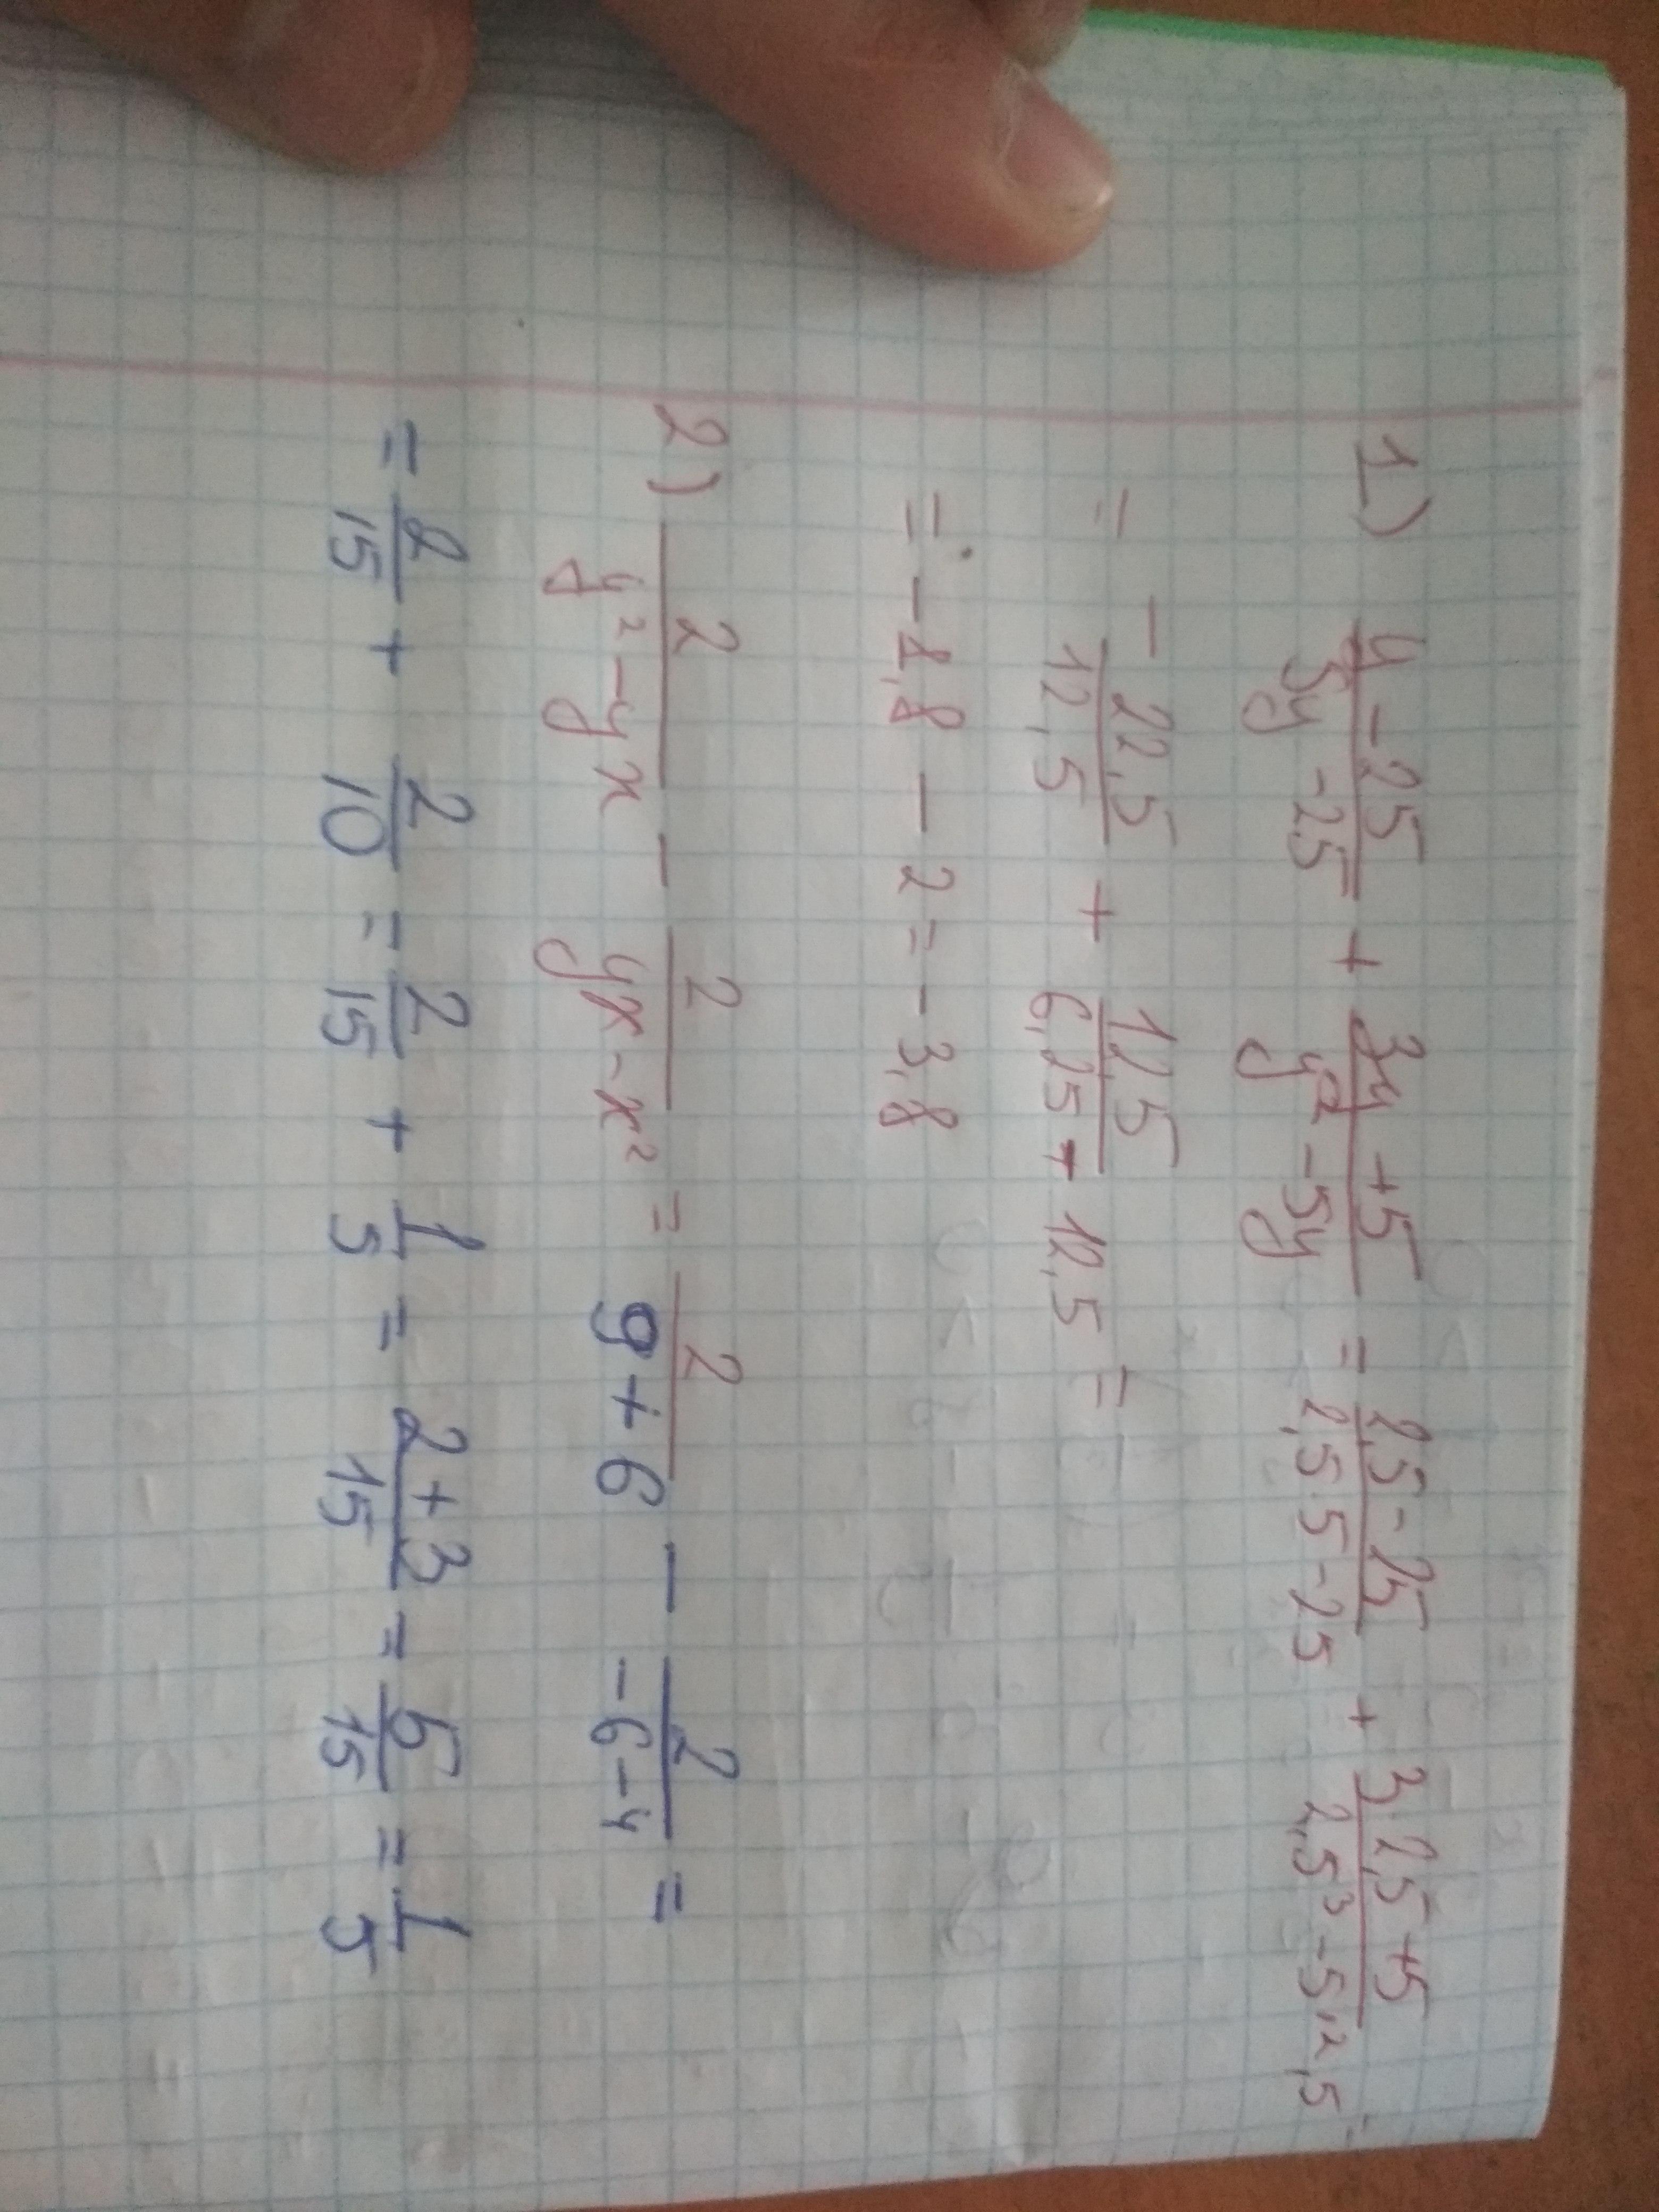 1) (y-25)/(5y-25) + (3y+5)/(y²-5y) = (2,5-25)/(2,5·5-25) + (3·2,5+5)/(2,5³-5·2,5) =
= -22,5/12,5 + 12,5/(6,25-12,5) =
= -1,8 - 2 = -3,8
2) 2/(y²-yx) - 2/(yx-x²) = 2/(9+6) - 2/(-6-4) =
= 2/15 + 2/10 = 2/15 + 1/5 = (2+3)/15 = 5/15 = 1/5